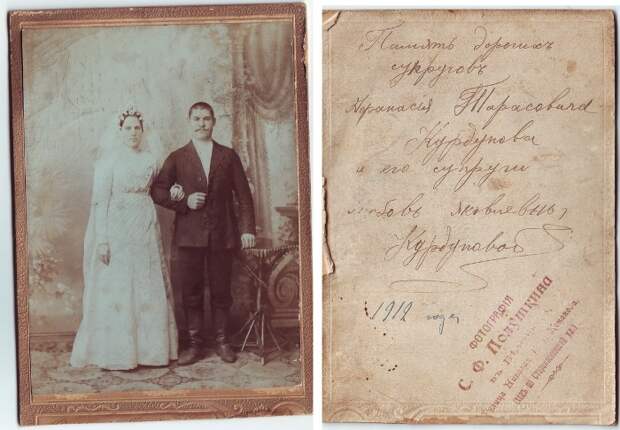 Память дорогихъ
супруговъ
Афанасія Тарасовича
Курдупова
и его супруги
любовь Яковлевны,
Курдуповой
1912 года
ФОТОГРАФІЯ
С. Ф. Полуткина